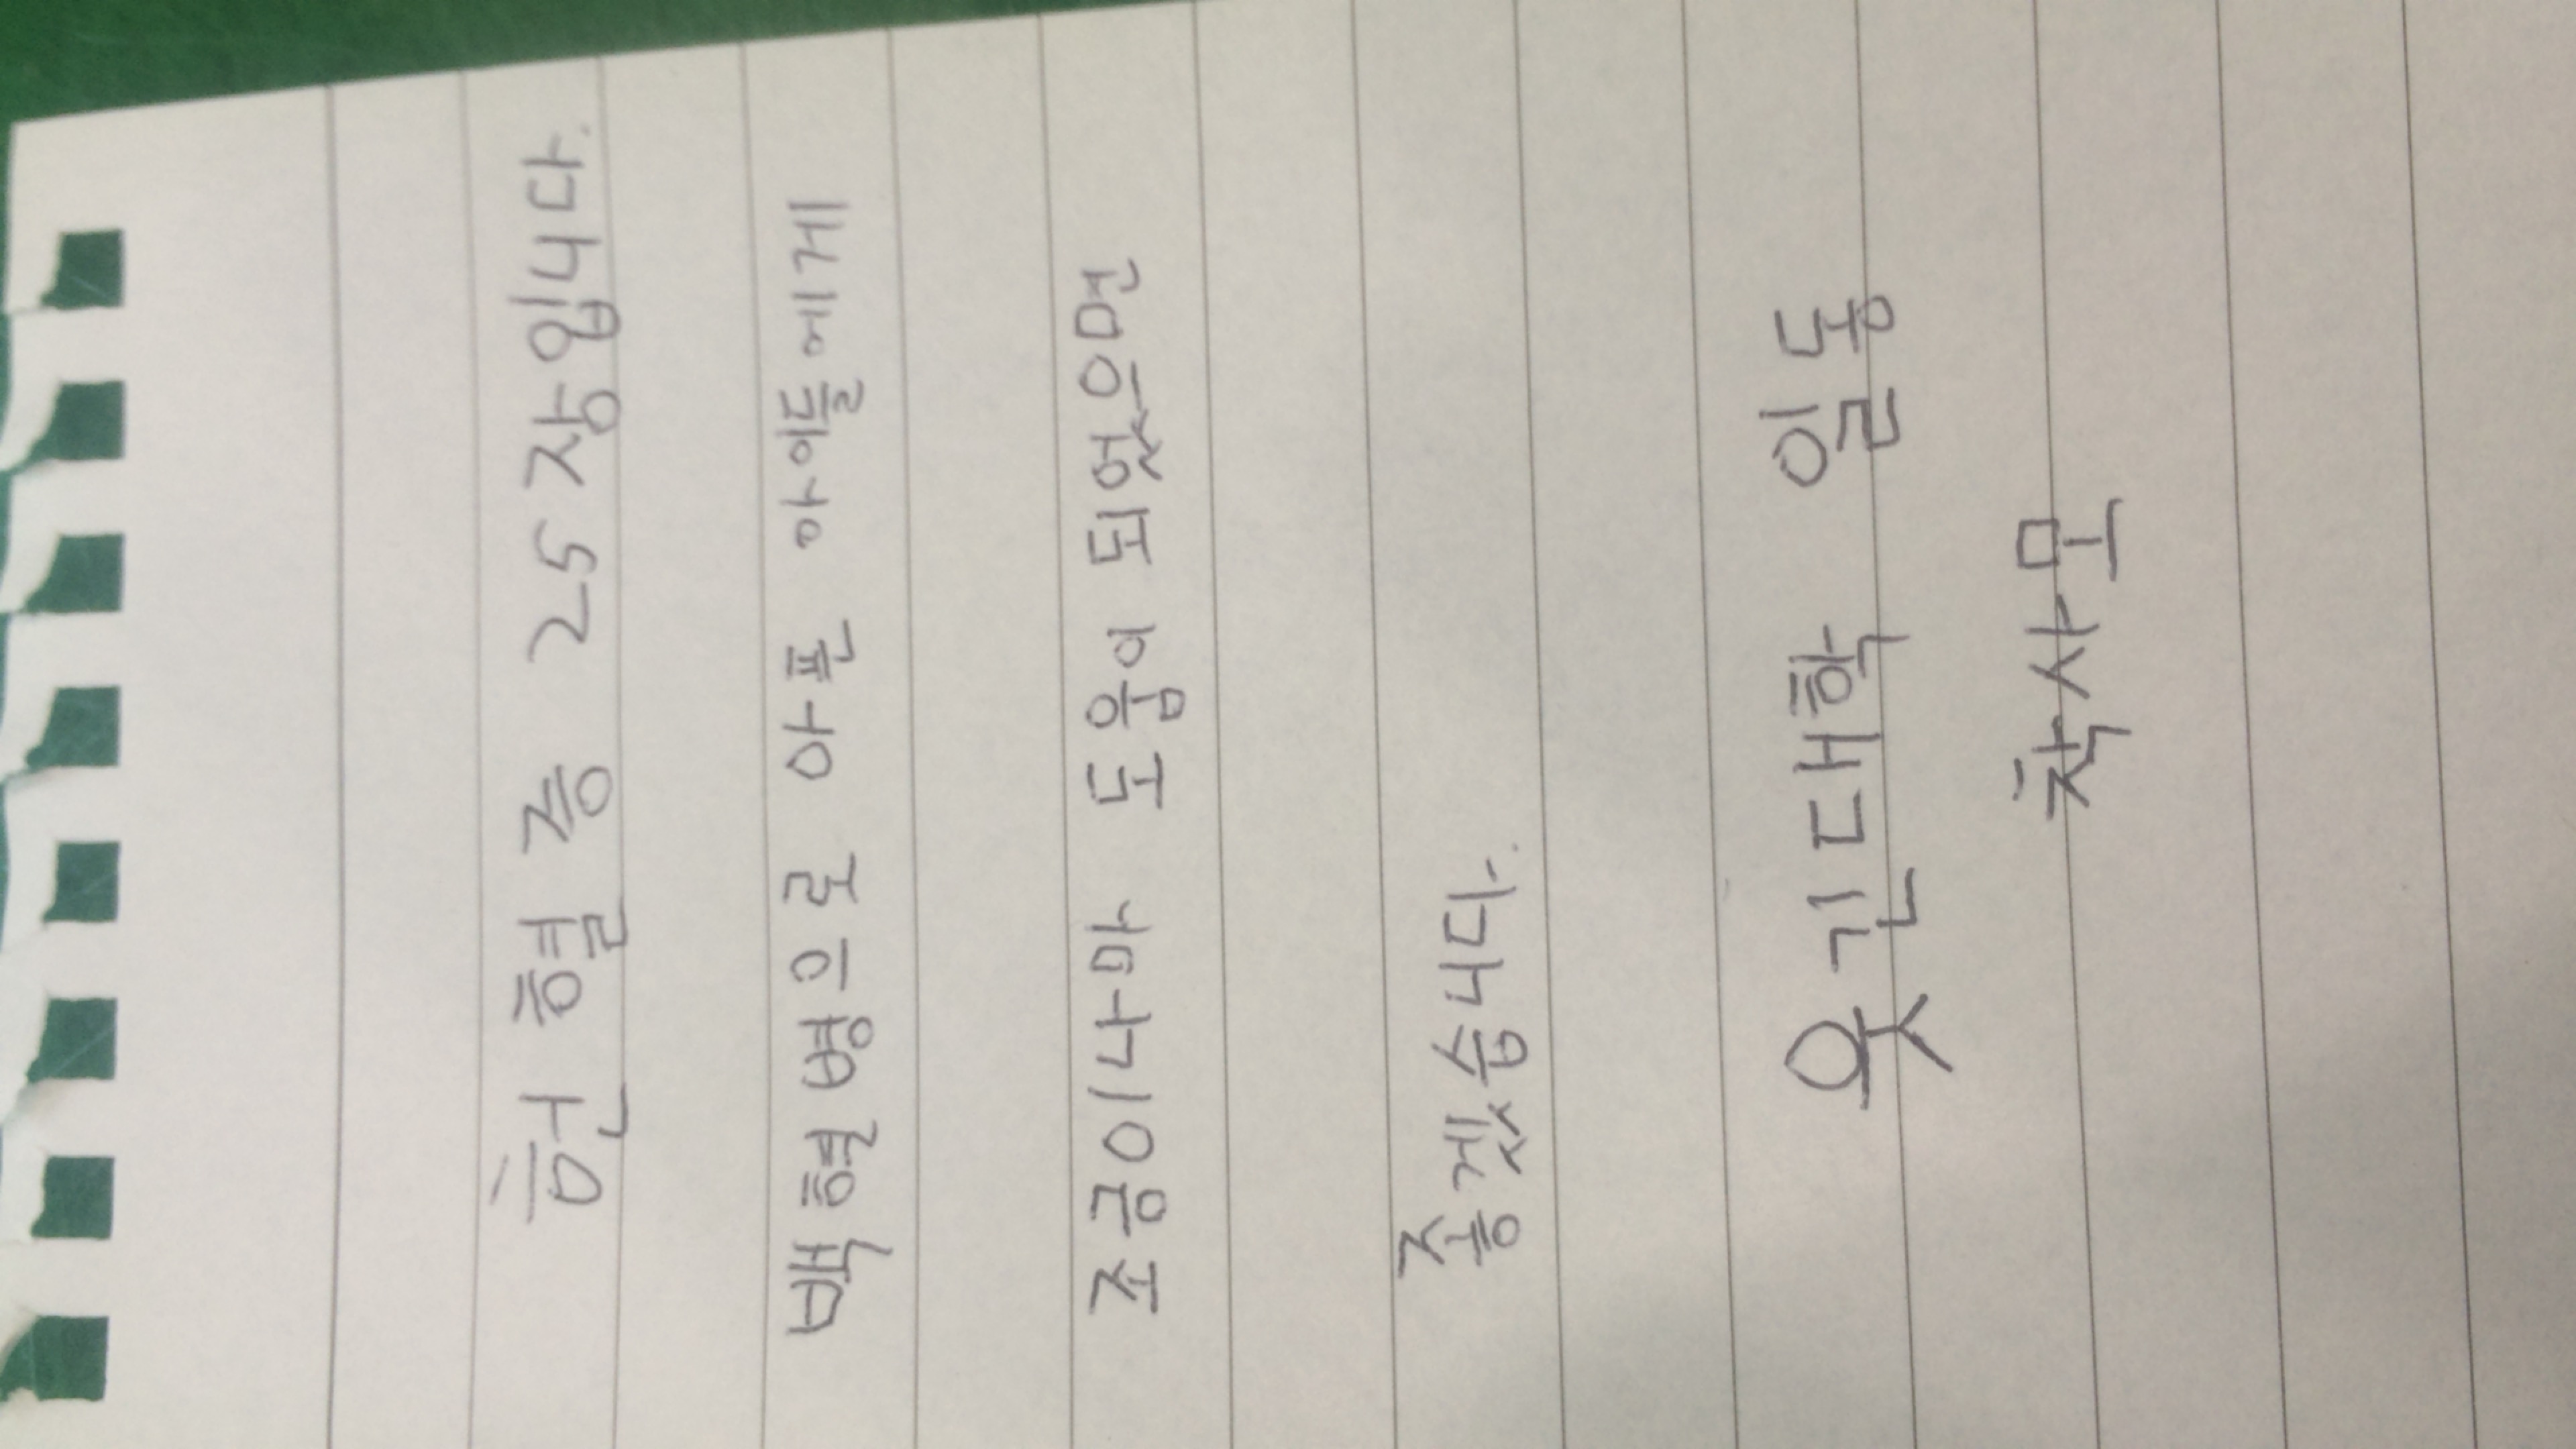 헌혈증 25장입니다.
백혈병으로 아픈 아이들에게
조금이나마 도움이 되었으면
좋겠습니다.
웃긴대학 일동
착사모